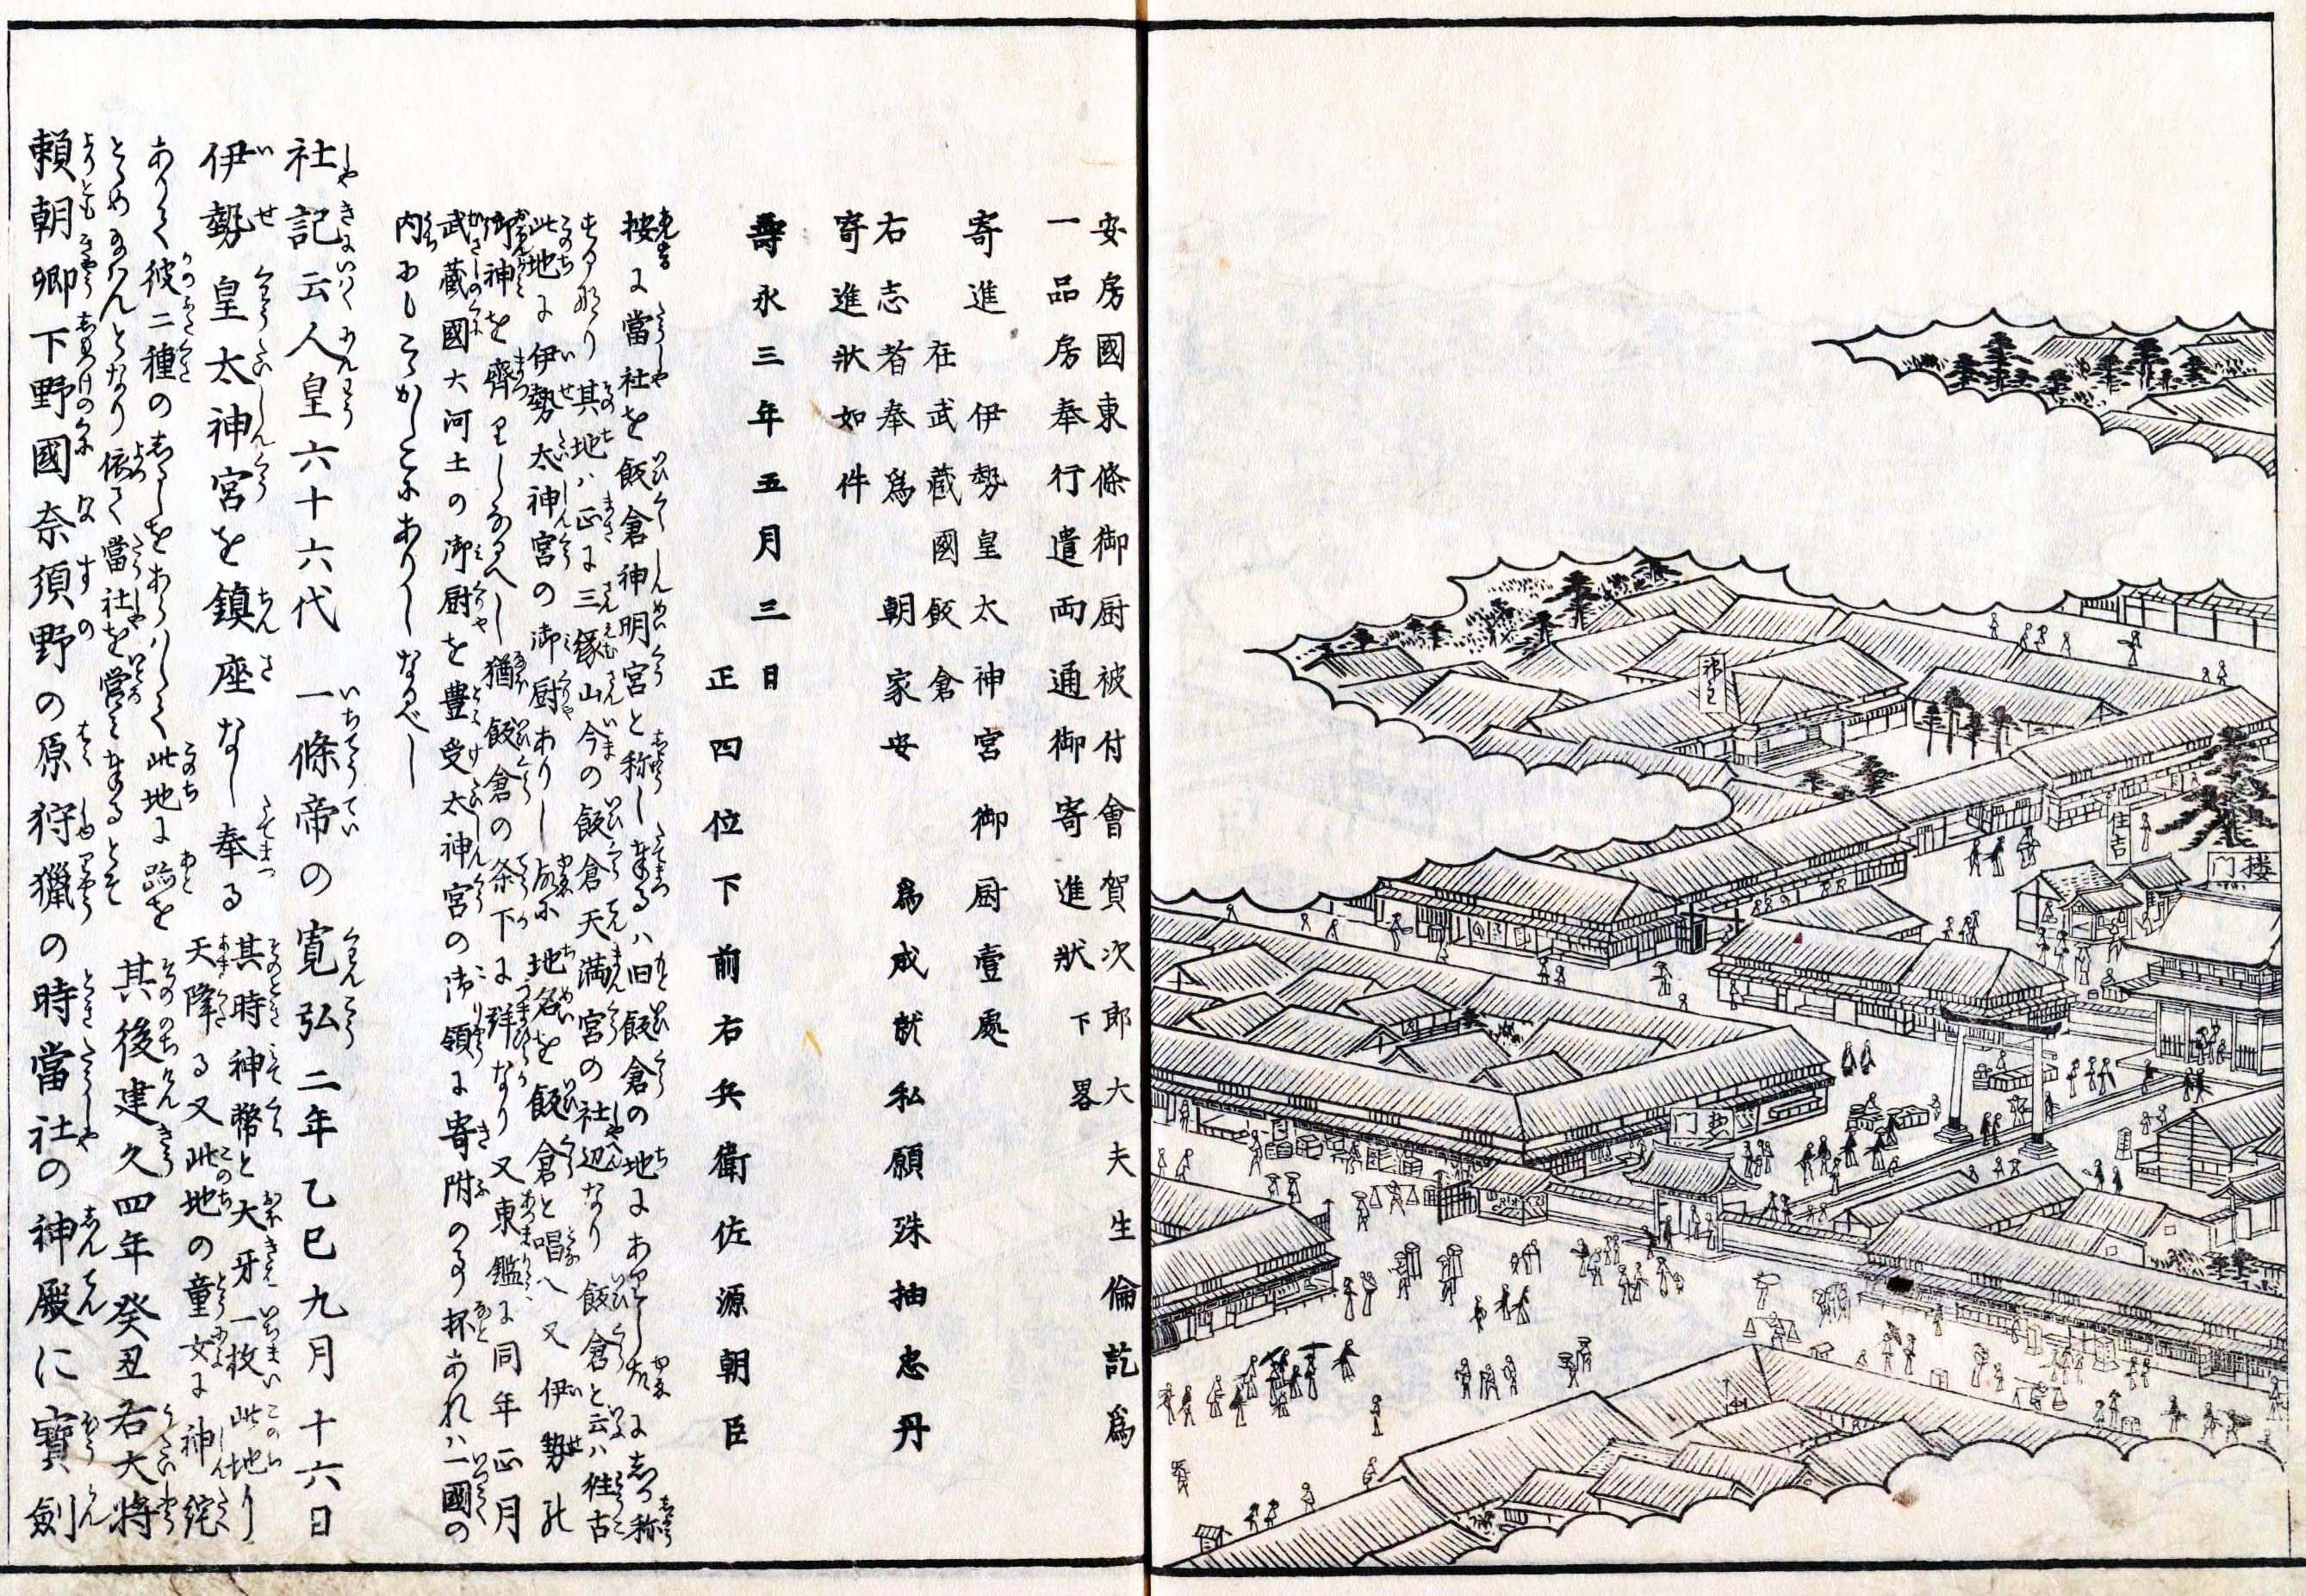 神主
住吉
楼門
惣門
安房國東條御厨被付會賀次郎大夫生倫訖爲
一品房奉行遣両通御寄進狀下畧
寄進 伊勢皇太神宮御厨壹處
在武蔵國飯倉
右志者奉爲 朝家安 爲成就私願殊抽忠丹
寄進狀如件
壽永三年五月三日
正四位下前右兵衛佐源朝臣
按に當社を飯倉神明宮と称し奉るハ旧飯倉の地にありし故にしか称
する所なり其地ハ正に三縁山今の飯倉天満宮の社辺なり飯倉と云ハ往古
此地に伊勢太神宮の御厨ありし故に地名を飯倉と唱へ又伊勢の
御神を齋りしなるへし猶飯倉の条下に詳なり又東鑑に同年正月
武蔵國大河土の御厨を豊受太神宮の御領に寄附の事杯あれハ一國の
内にもこゝかしこにありしなるべし
社記云人皇六十六代 一條帝の寛弘二年乙巳九月十六日
伊勢皇太神宮を鎮座なし奉る
其時神幣と大牙一枚此地り
天降る又此地の童女に神託
ありて彼二種のしるしをあらハして此地に跡を
とゝめ給はんとなり依て當社を営み奉るとそ
其後建久四年癸丑右大将
頼朝卿下野國奈須野の原狩獵の時當社の神殿に寳劍